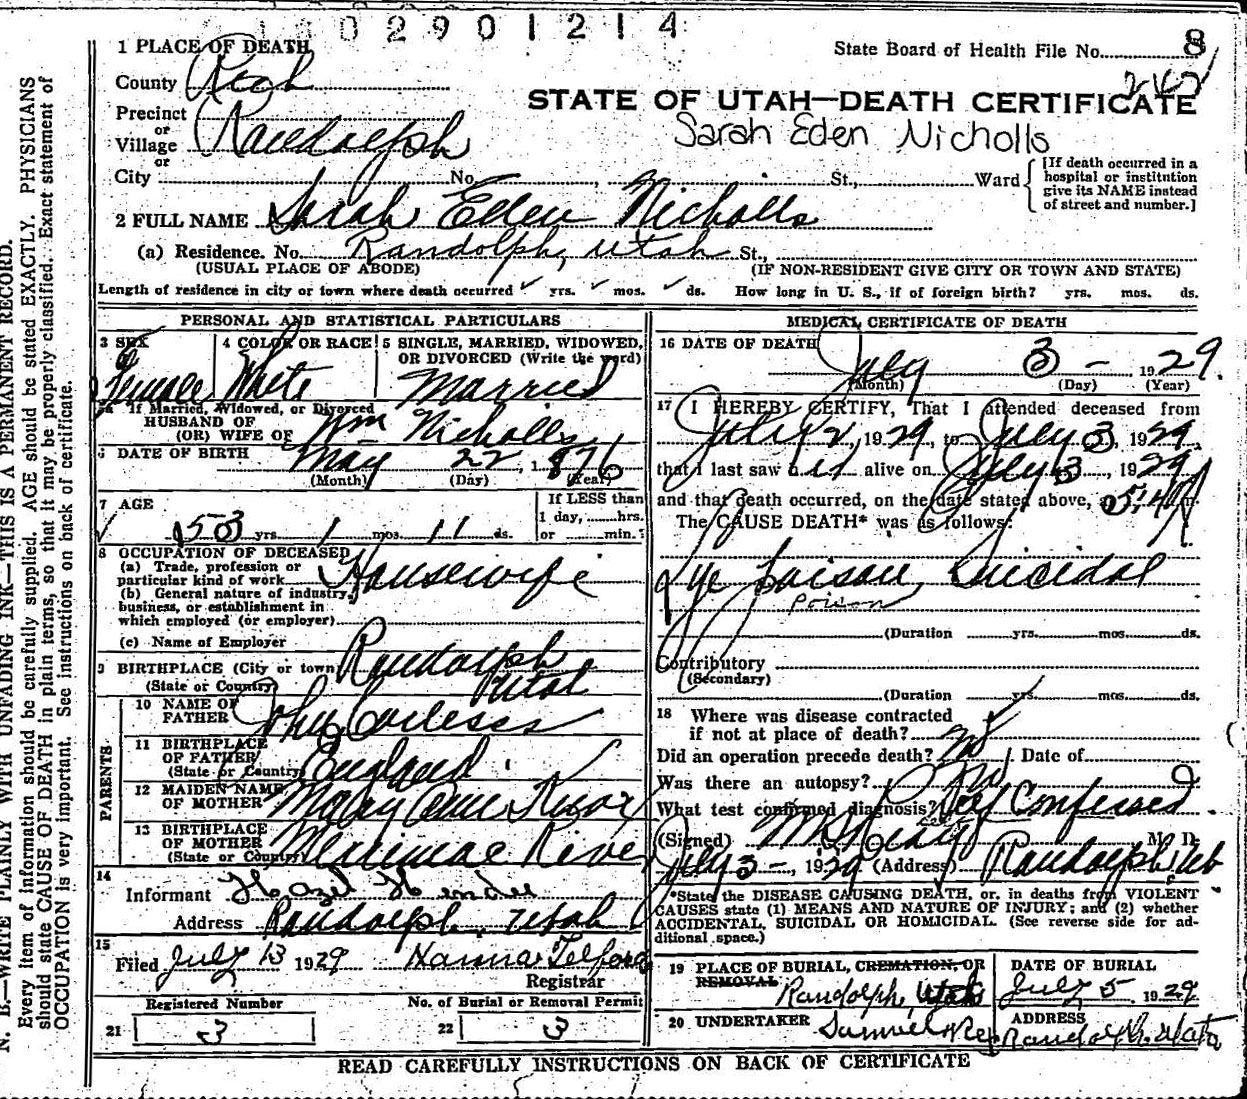 0 2 9 0 1 2 1 4
1 PLACE OF DEATH
State Board of Health File No. 8
242
County Rich
STATE OF UTAH—DEATH CERTIFICATE
Precinct
or
Village Randolph
Sarah Eden Nicholls
or
City No. , St., Ward
[If death occurred in a
hospital or institution
give its NAME instead
of street and number.]
2 FULL NAME Sarah Eden Nicholls
(a) Residence. No. Randolph, Utah St.,
(USUAL PLACE OF ABODE) (IF NON-RESIDENT GIVE CITY OR TOWN AND STATE)
Length of residence in city or town where death occurred ✓ yrs. ✓ mos. ✓ ds. How long in U. S., if of foreign birth? yrs. mos. ds.
PERSONAL AND STATISTICAL PARTICULARS
3 SEX
Female
4 COLOR OR RACE
White
5 SINGLE, MARRIED, WIDOWED,
OR DIVORCED (Write the word)
Married
If Married, Widowed, or Divorced
HUSBAND OF
(OR) WIFE OF Wm Nicholls
6 DATE OF BIRTH May 22, 1876
(Month) (Day) (Year)
7 AGE
53 yrs. 1 mos. 11 ds.
If LESS than
1 day, hrs.
or min.
8 OCCUPATION OF DECEASED
(a) Trade, profession or
particular kind of work Housewife
(b) General nature of industry,
business, or establishment in
which employed (or employer)
(c) Name of Employer
9 BIRTHPLACE (City or town) Randolph
(State or Country) Utah
PARENTS
10 NAME OF
FATHER John
11 BIRTHPLACE
OF FATHER
(State or Country) England
12 MAIDEN NAME
OF MOTHER Mary Ann
13 BIRTHPLACE
OF MOTHER
(State or Country) Merrimac River
14
Informant Hazel
Address Randolph, Utah
15
Filed July 13 1929 Hanna Telford
Registrar
Registered Number No. of Burial or Removal Permit
21 3 22 3
MEDICAL CERTIFICATE OF DEATH
16 DATE OF DEATH July 3 - 1929.
(Month) (Day) (Year)
17 I HEREBY CERTIFY, That I attended deceased from
July 2, 1929, to July 3, 1929,
that I last saw h alive on July 3, 1929
and that death occurred, on the date stated above,
The CAUSE DEATH* was as follows:
Lye Poison, Suicidal
Poison
(Duration yrs. mos. ds.
Contributory
(Secondary)
(Duration yrs. mos. ds.
18 Where was disease contracted
if not at place of death?
Did an operation precede death? no Date of
Was there an autopsy? no
What test confirmed diagnosis? Self Confessed
(Signed) M. D.
July 3-, 1929 (Address) Randolph, Utah
*State the DISEASE CAUSING DEATH, or, in deaths from VIOLENT
CAUSES state (1) MEANS AND NATURE OF INJURY; and (2) whether
ACCIDENTAL, SUICIDAL OR HOMICIDAL. (See reverse side for ad-
ditional space.)
19 PLACE OF BURIAL, CREMATION, OR
REMOVAL
Randolph, Utah
DATE OF BURIAL
July 5 1929
20 UNDERTAKER Samuel
ADDRESS
Randolph, Utah
READ CAREFULLY INSTRUCTIONS ON BACK OF CERTIFICATE
N. B.—WRITE PLAINLY WITH UNFADING INK—THIS IS A PERMANENT RECORD.
Every item of information should be carefully supplied. AGE should be stated EXACTLY. PHYSICIANS
should state CAUSE OF DEATH in plain terms, so that it may be properly classified. Exact statement of
OCCUPATION is very important. See instructions on back of certificate.